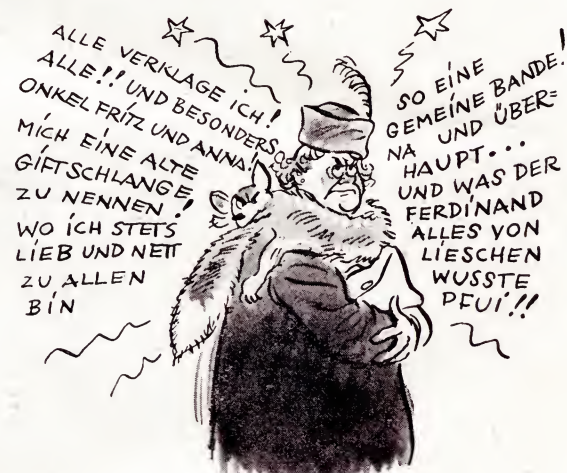 ALLE VERKLAGE ICH!
ALLE!! UND BESONDERS
ONKEL FRITZ UND ANNA!
MICH EINE ALTE
GIFTSCHLANGE
ZU NENNEN!
WO ICH STETS
LIEB UND NETT
ZU ALLEN
BIN
SO EINE
GEMEINE BANDE!
NA UND ÜBER=
HAUPT...
UND WAS DER
FERDINAND
ALLES VON
LIESCHEN
WUSSTE
PFUI!!